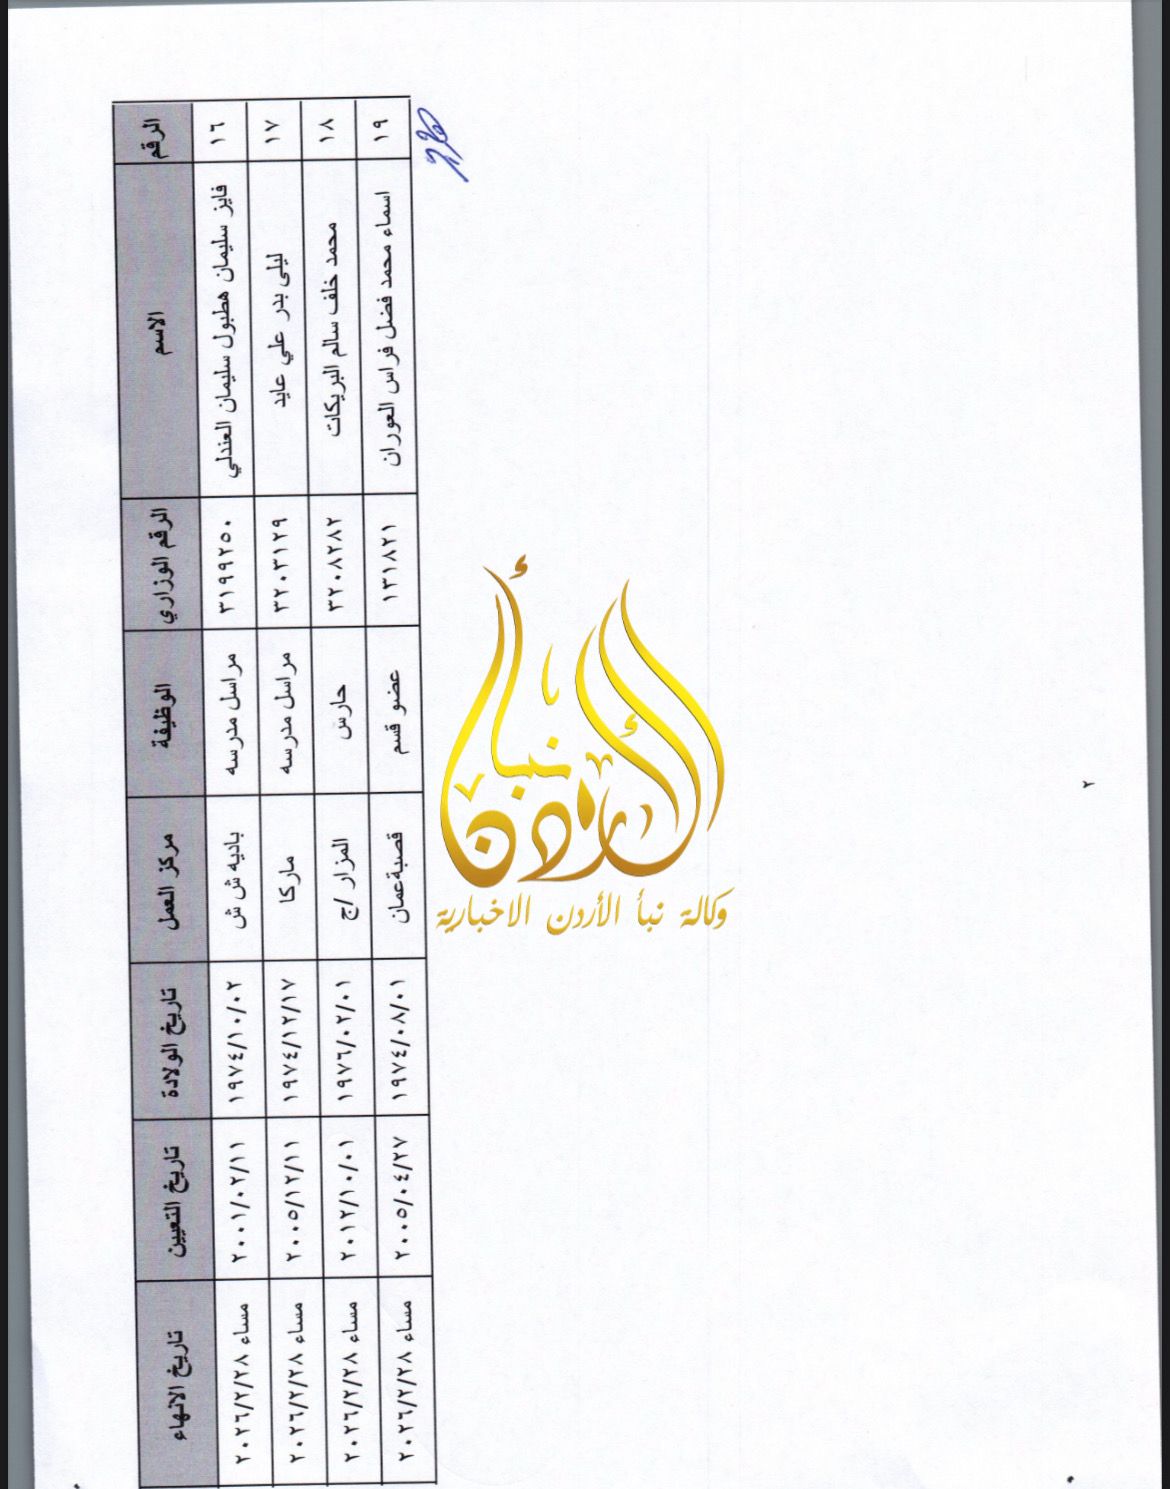 الرقم الاسم الرقم الوزاري الوظيفة مركز العمل تاريخ الولادة تاريخ التعيين تاريخ الانهاء
١٦ فايز سليمان هطبول سليمان العندلي ٣١٩٩٢٥٠ مراسل مدرسه باديه ش ش ١٩٧٤/١٠/٠٢ ٢٠٠١/٠٢/١١ مساء ٢٠٢٦/٢/٢٨
١٧ ليلى بدر علي عايد ٣٢٠٣١٢٩ مراسل مدرسه ماركا ١٩٧٤/١٢/١٧ ٢٠٠٥/١٢/١١ مساء ٢٠٢٦/٢/٢٨
١٨ محمد خلف سالم البريكات ٣٢٠٨٢٨٢ حارس المزار /ج ١٩٧٦/٠٢/٠١ ٢٠١٢/١٠/٠١ مساء ٢٠٢٦/٢/٢٨
١٩ اسماء محمد فضل فراس العوران ١٣١٨٢١ عضو قسم قصبةعمان ١٩٧٤/٠٨/٠١ ٢٠٠٥/٠٤/٢٧ مساء ٢٠٢٦/٢/٢٨
نبأ
الأردن
وكالة نبأ الأردن الاخبارية
٢